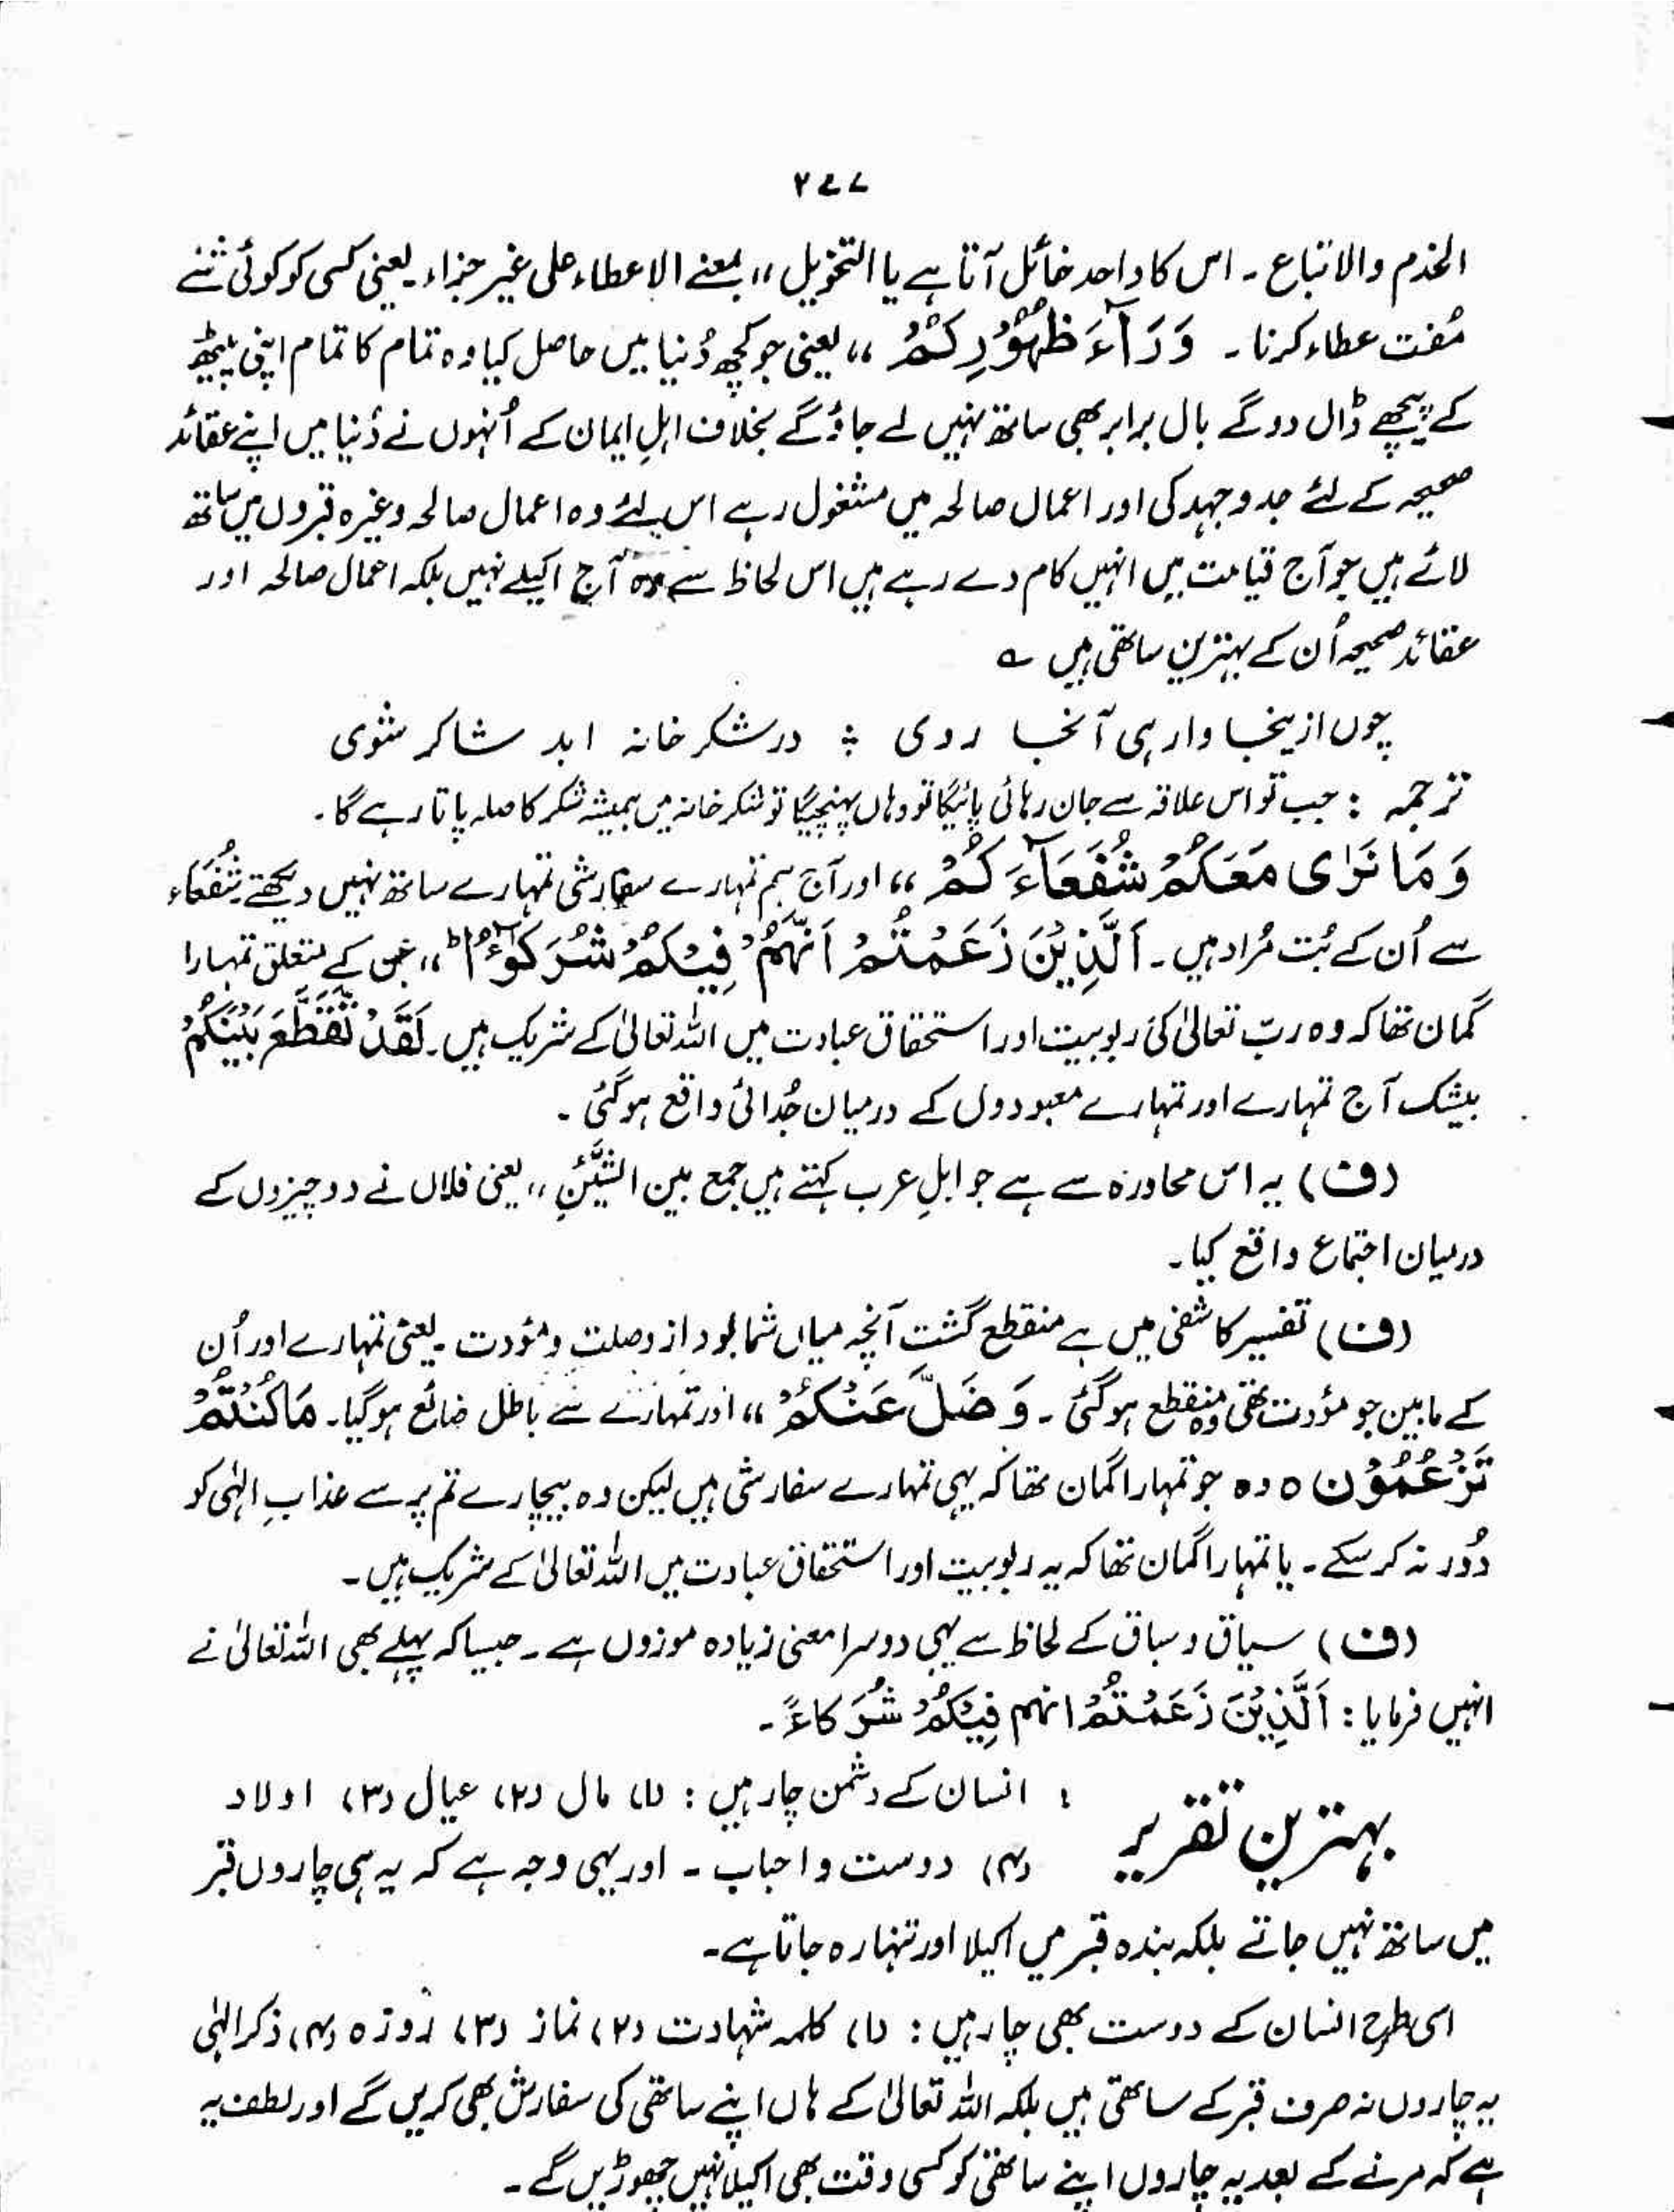 ۲۷۷
الخدم والاتباع ۔ اس کا واحد خائل آتا ہے یا التخویل ،، بمعنے الاعطاء علی غیر جزاء ۔ یعنی کسی کو کوئی شئے
مُفت عطاء کرنا ۔ وَرَآءَ ظُہُوۡرِکُمۡ ،، یعنی جو کچھ دُنیا میں حاصل کیا وہ تمام کا تمام اپنی پیٹھ
کے پیچھے ڈال دو گے بال برابر بھی ساتھ نہیں لے جاؤ گے بخلاف اہلِ ایمان کے اُنہوں نے دُنیا میں اپنے عقائد
صحیحہ کے لئے جد و جہد کی اور اعمال صالحہ میں مشغول رہے اس لئے وہ اعمال صالحہ وغیرہ قبروں میں ساتھ
لائے ہیں جو آج قیامت میں انہیں کام دے رہے ہیں اس لحاظ سے وہ آج اکیلے نہیں بلکہ اعمال صالحہ اور
عقائد صحیحہ اُن کے بہترین ساتھی ہیں ؎
چوں ازینجا وارہی آنجا روی ؛ در شکر خانہ ابد شاکر شوی
ترجمہ : جب تو اس علاقہ سے جان رہائی پائیگا تو وہاں پہنچیگا تو شکر خانہ میں ہمیشہ شکر کا صلہ پاتا رہے گا ۔
وَمَا نَرٰی مَعَکُمۡ شُفَعَآءَ کُمُ ،، اور آج ہم تمہارے سفارشی تمہارے ساتھ نہیں دیکھتے ۔ شُفَعَاء
سے اُن کے بُت مُراد ہیں ۔ اَلَّذِیۡنَ زَعَمۡتُمۡ اَنَّہُمۡ فِیۡکُمۡ شُرَکٰٓؤُا ؕ ،، جن کے متعلق تمہارا
گمان تھا کہ وہ ربّ تعالیٰ کی ربوبیت اور استحقاق عبادت میں اللہ تعالیٰ کے شریک ہیں ۔ لَقَدۡ تَّقَطَّعَ بَیۡنَکُمۡ
بیشک آج تمہارے اور تمہارے معبودوں کے درمیان جُدائی واقع ہو گئی ۔
(ف) یہ اس محاورہ سے ہے جو اہلِ عرب کہتے ہیں جمع بین الشَّیۡئَیۡنِ ،، یعنی فلاں نے دو چیزوں کے
درمیان اجتماع واقع کیا ۔
(ف) تفسیر کاشفی میں ہے منقطع گشت آنچہ میاں شما بود از وصلت و مؤدت ۔ یعنی تمہارے اور اُن
کے مابین جو مؤدت تھی وہ منقطع ہو گئی ۔ وَضَلَّ عَنۡکُمۡ ،، اور تمہارے سے باطل ضائع ہو گیا ۔ مَا کُنۡتُمۡ
تَزۡعُمُوۡنَ ○ وہ جو تمہارا گمان تھا کہ یہی تمہارے سفارشی ہیں لیکن وہ بیچارے تم پر سے عذابِ الٰہی کو
دُور نہ کر سکے ۔ یا تمہارا گمان تھا کہ یہ ربوبیت اور استحقاق عبادت میں اللہ تعالیٰ کے شریک ہیں ۔
(ف) سیاق و سباق کے لحاظ سے یہی دوسرا معنی زیادہ موزوں ہے ۔ جیسا کہ پہلے بھی اللہ تعالیٰ نے
انہیں فرمایا : اَلَّذِیۡنَ زَعَمۡتُمۡ انہم فِیۡکُمۡ شُرَکَاءَ ۔
بہترین تقریر : انسان کے دشمن چار ہیں : (۱) مال (۲) عیال (۳) اولاد
(۴) دوست و احباب ۔ اور یہی وجہ ہے کہ یہ ہی چاروں قبر
میں ساتھ نہیں جاتے بلکہ بندہ قبر میں اکیلا اور تنہا رہ جاتا ہے ۔
اسی طرح انسان کے دوست بھی چار ہیں : (۱) کلمہ شہادت (۲) نماز (۳) روزہ (۴) ذکر الٰہی
یہ چاروں نہ صرف قبر کے ساتھی ہیں بلکہ اللہ تعالیٰ کے ہاں اپنے ساتھی کی سفارش بھی کریں گے اور لطف یہ
ہے کہ مرنے کے بعد یہ چاروں اپنے ساتھی کو کسی وقت بھی اکیلا نہیں چھوڑیں گے ۔